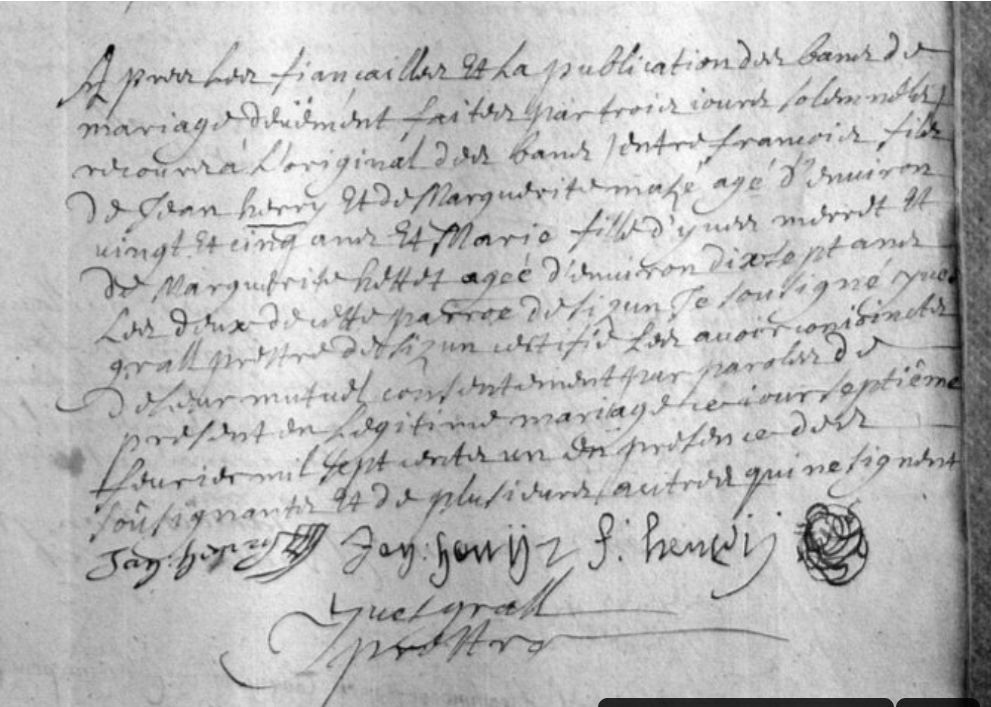 Apres les fiançailles et la publication des bans de
mariage deüement faites par trois iours solemnels
recours à l'original des bans entre francois fils
de Jean herry et de Marguerite mazé agé d'enuiron
uingt et cinq ans et Marie fille d'yues merret et
de Marguerite hettet ageé d'enuiron dix sept ans
Les deux de cette parroe de sizun Je sousigné yues
grall prestre de sizun certifie les auoir conioincts
de leur mutuel consentement par paroles de
présent en Legitime mariage ce iour septiême
feurier mil sept cents un en présence des
soûsignants et de plusieurs autres qui ne signent
Jan: herry Jan: herry f: henrij
yues grall
prestre